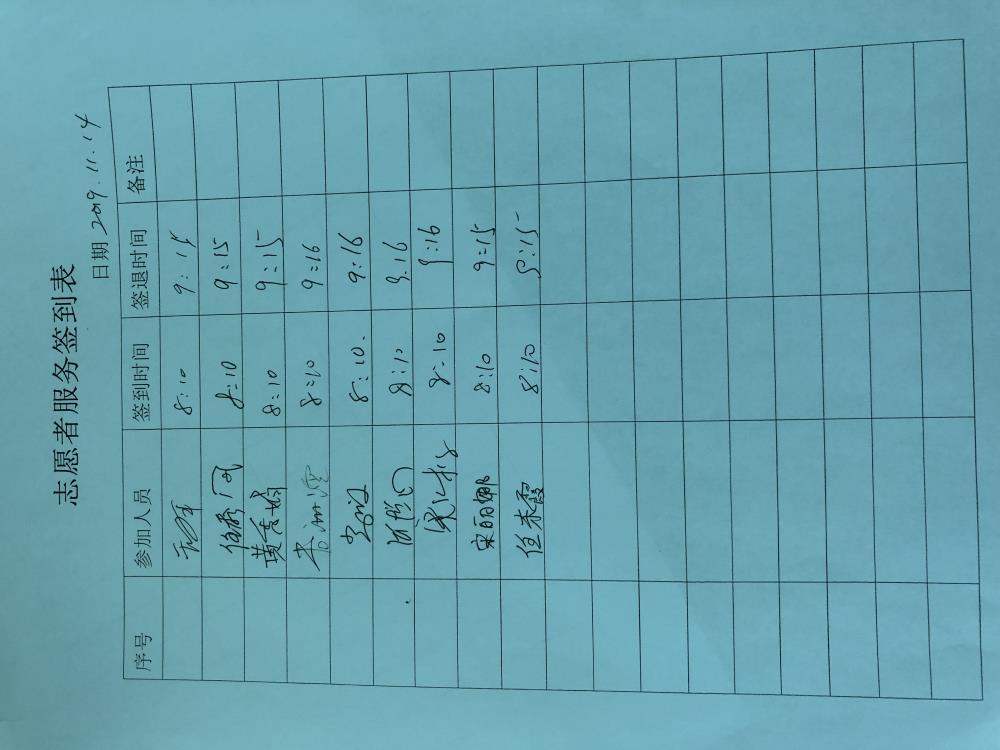 志愿者服务签到表
日期 2019.11.14
序号 参加人员 签到时间 签退时间 备注
8:10 9:15
8:10 9:15
黄秀娟 8:10 9:15
8:10 9:16
8:10. 9:16
8:10 9.16
8:10 9:16
宋丽娜 8:10 9:15
任米霞 8:10 9:15